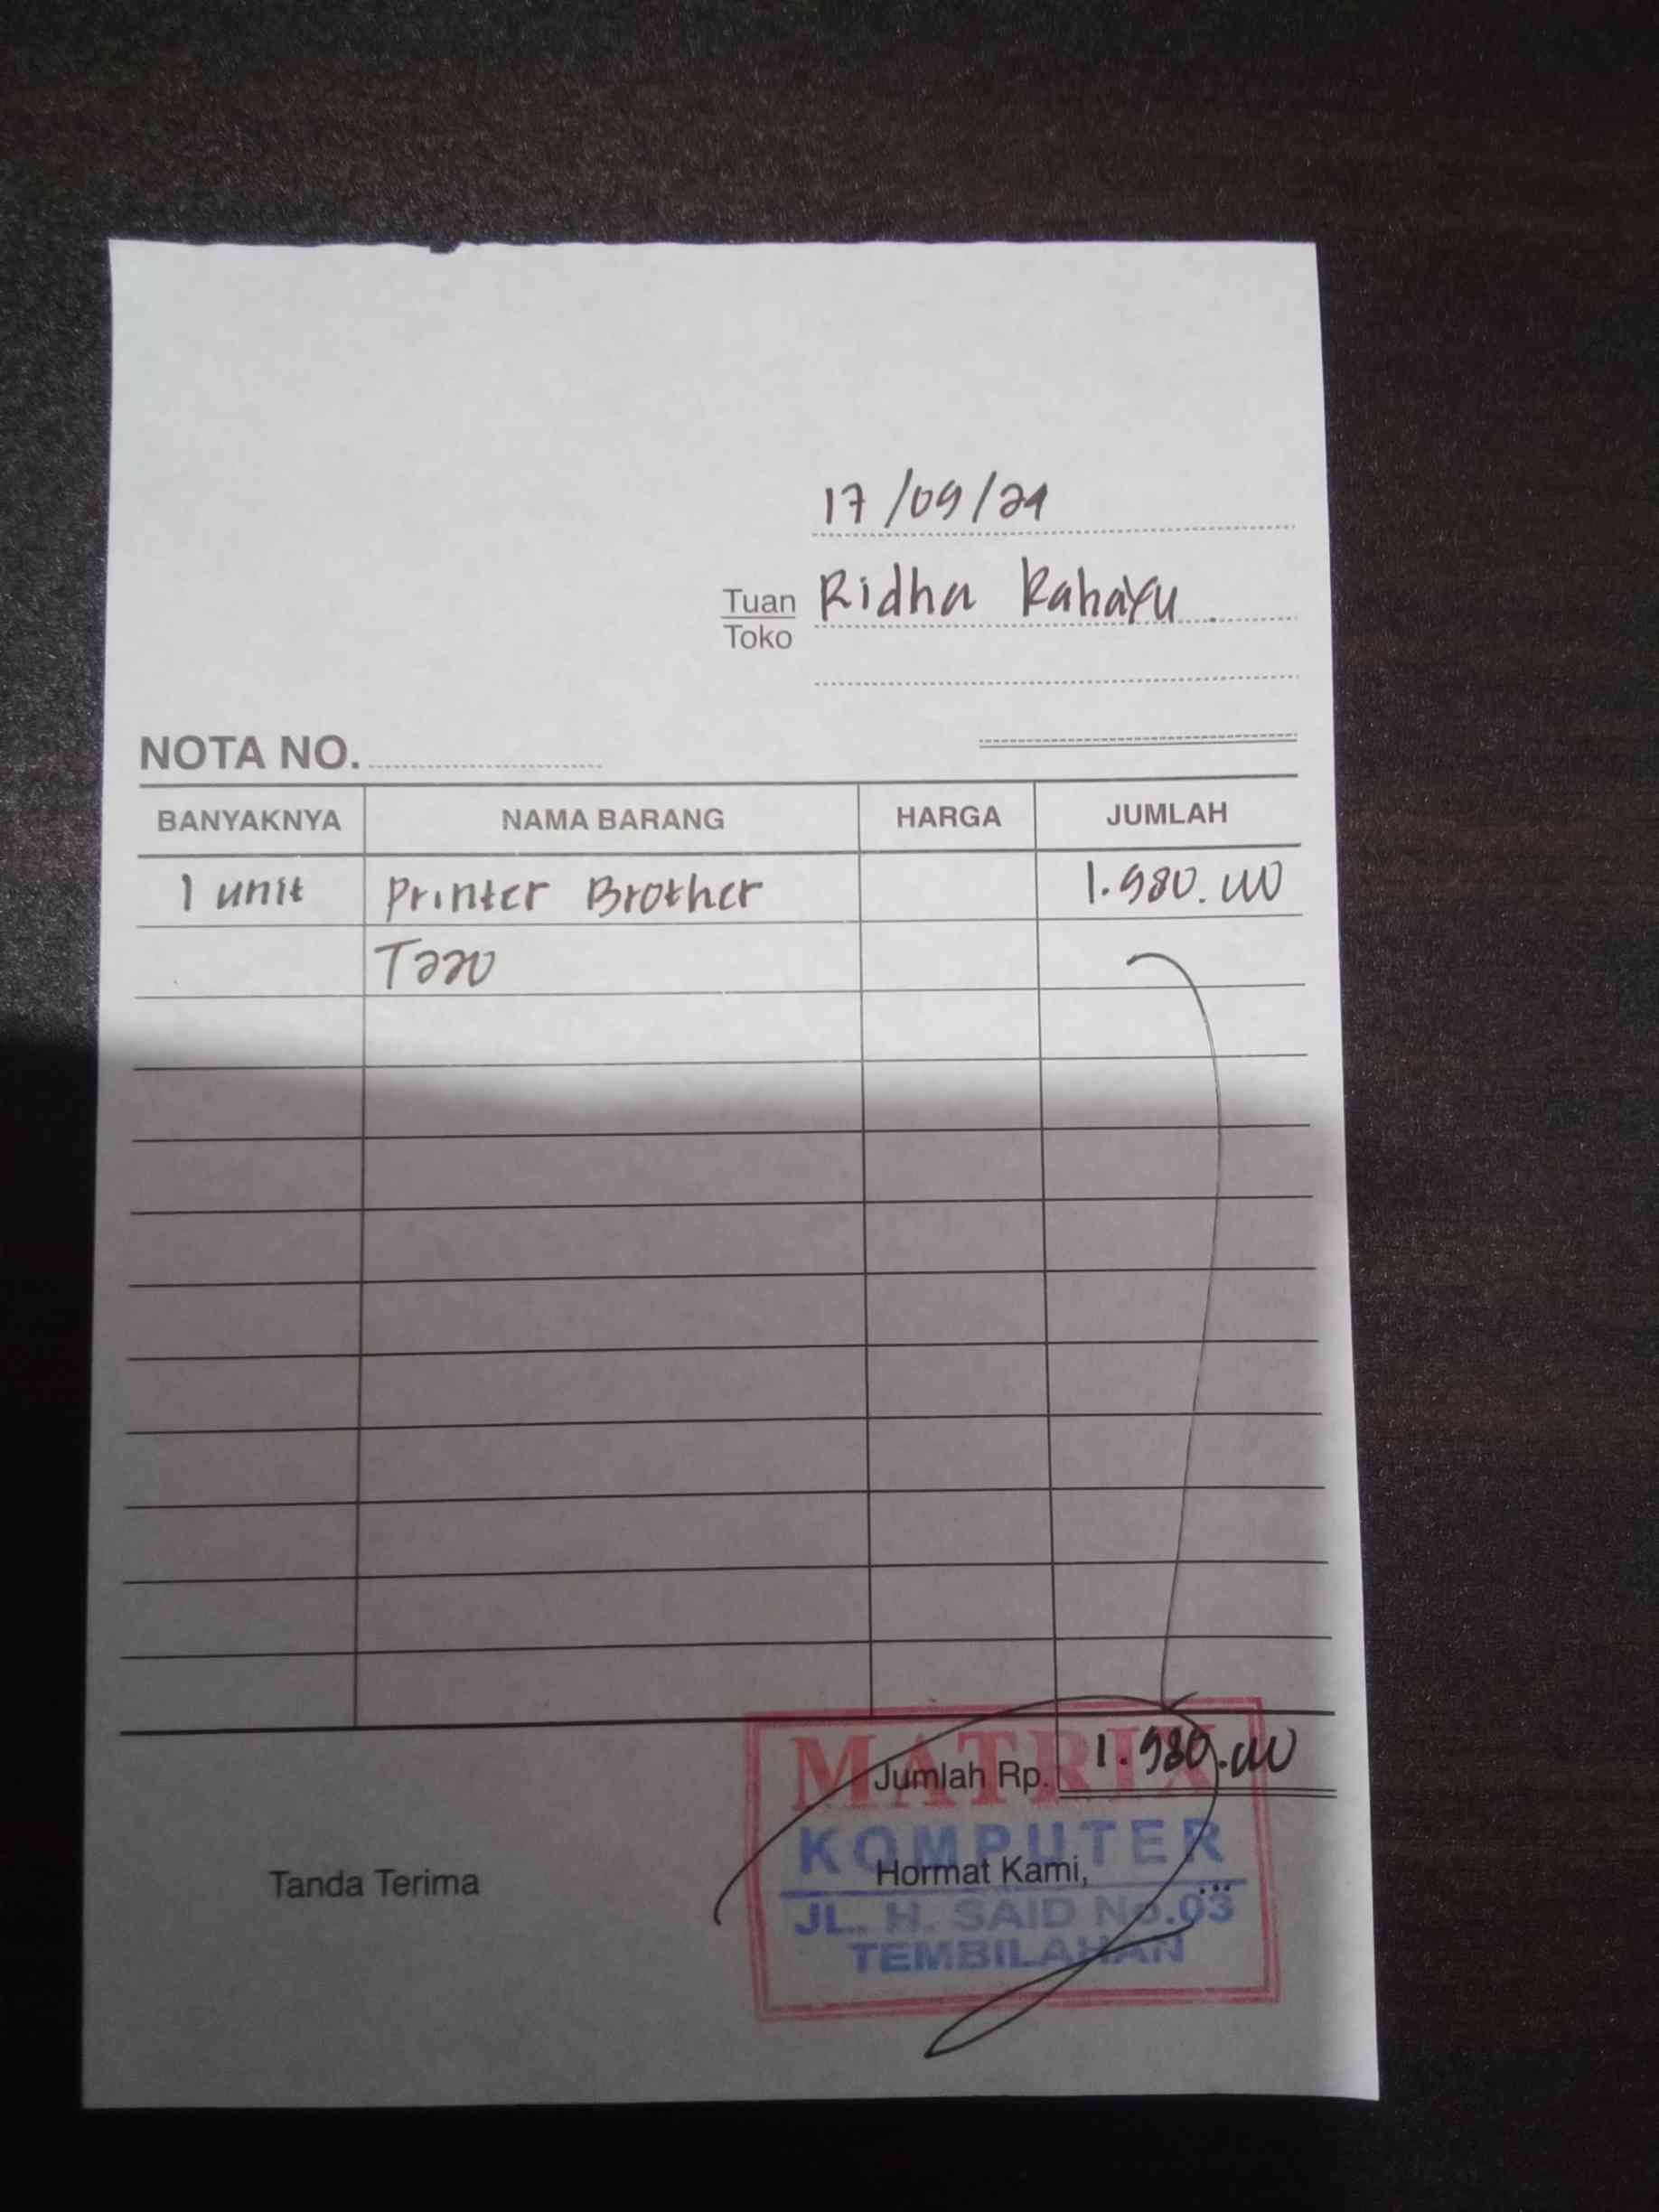 17/09/24
Tuan Ridha Rahayu
Toko
NOTA NO.
BANYAKNYA NAMA BARANG HARGA JUMLAH
1 unit Printer Brother 1.980.000
T220
MATRIX
Jumlah Rp. 1.980.000
KOMPUTER
Tanda Terima Hormat Kami,
JL. H. SAID No.03
TEMBILAHAN